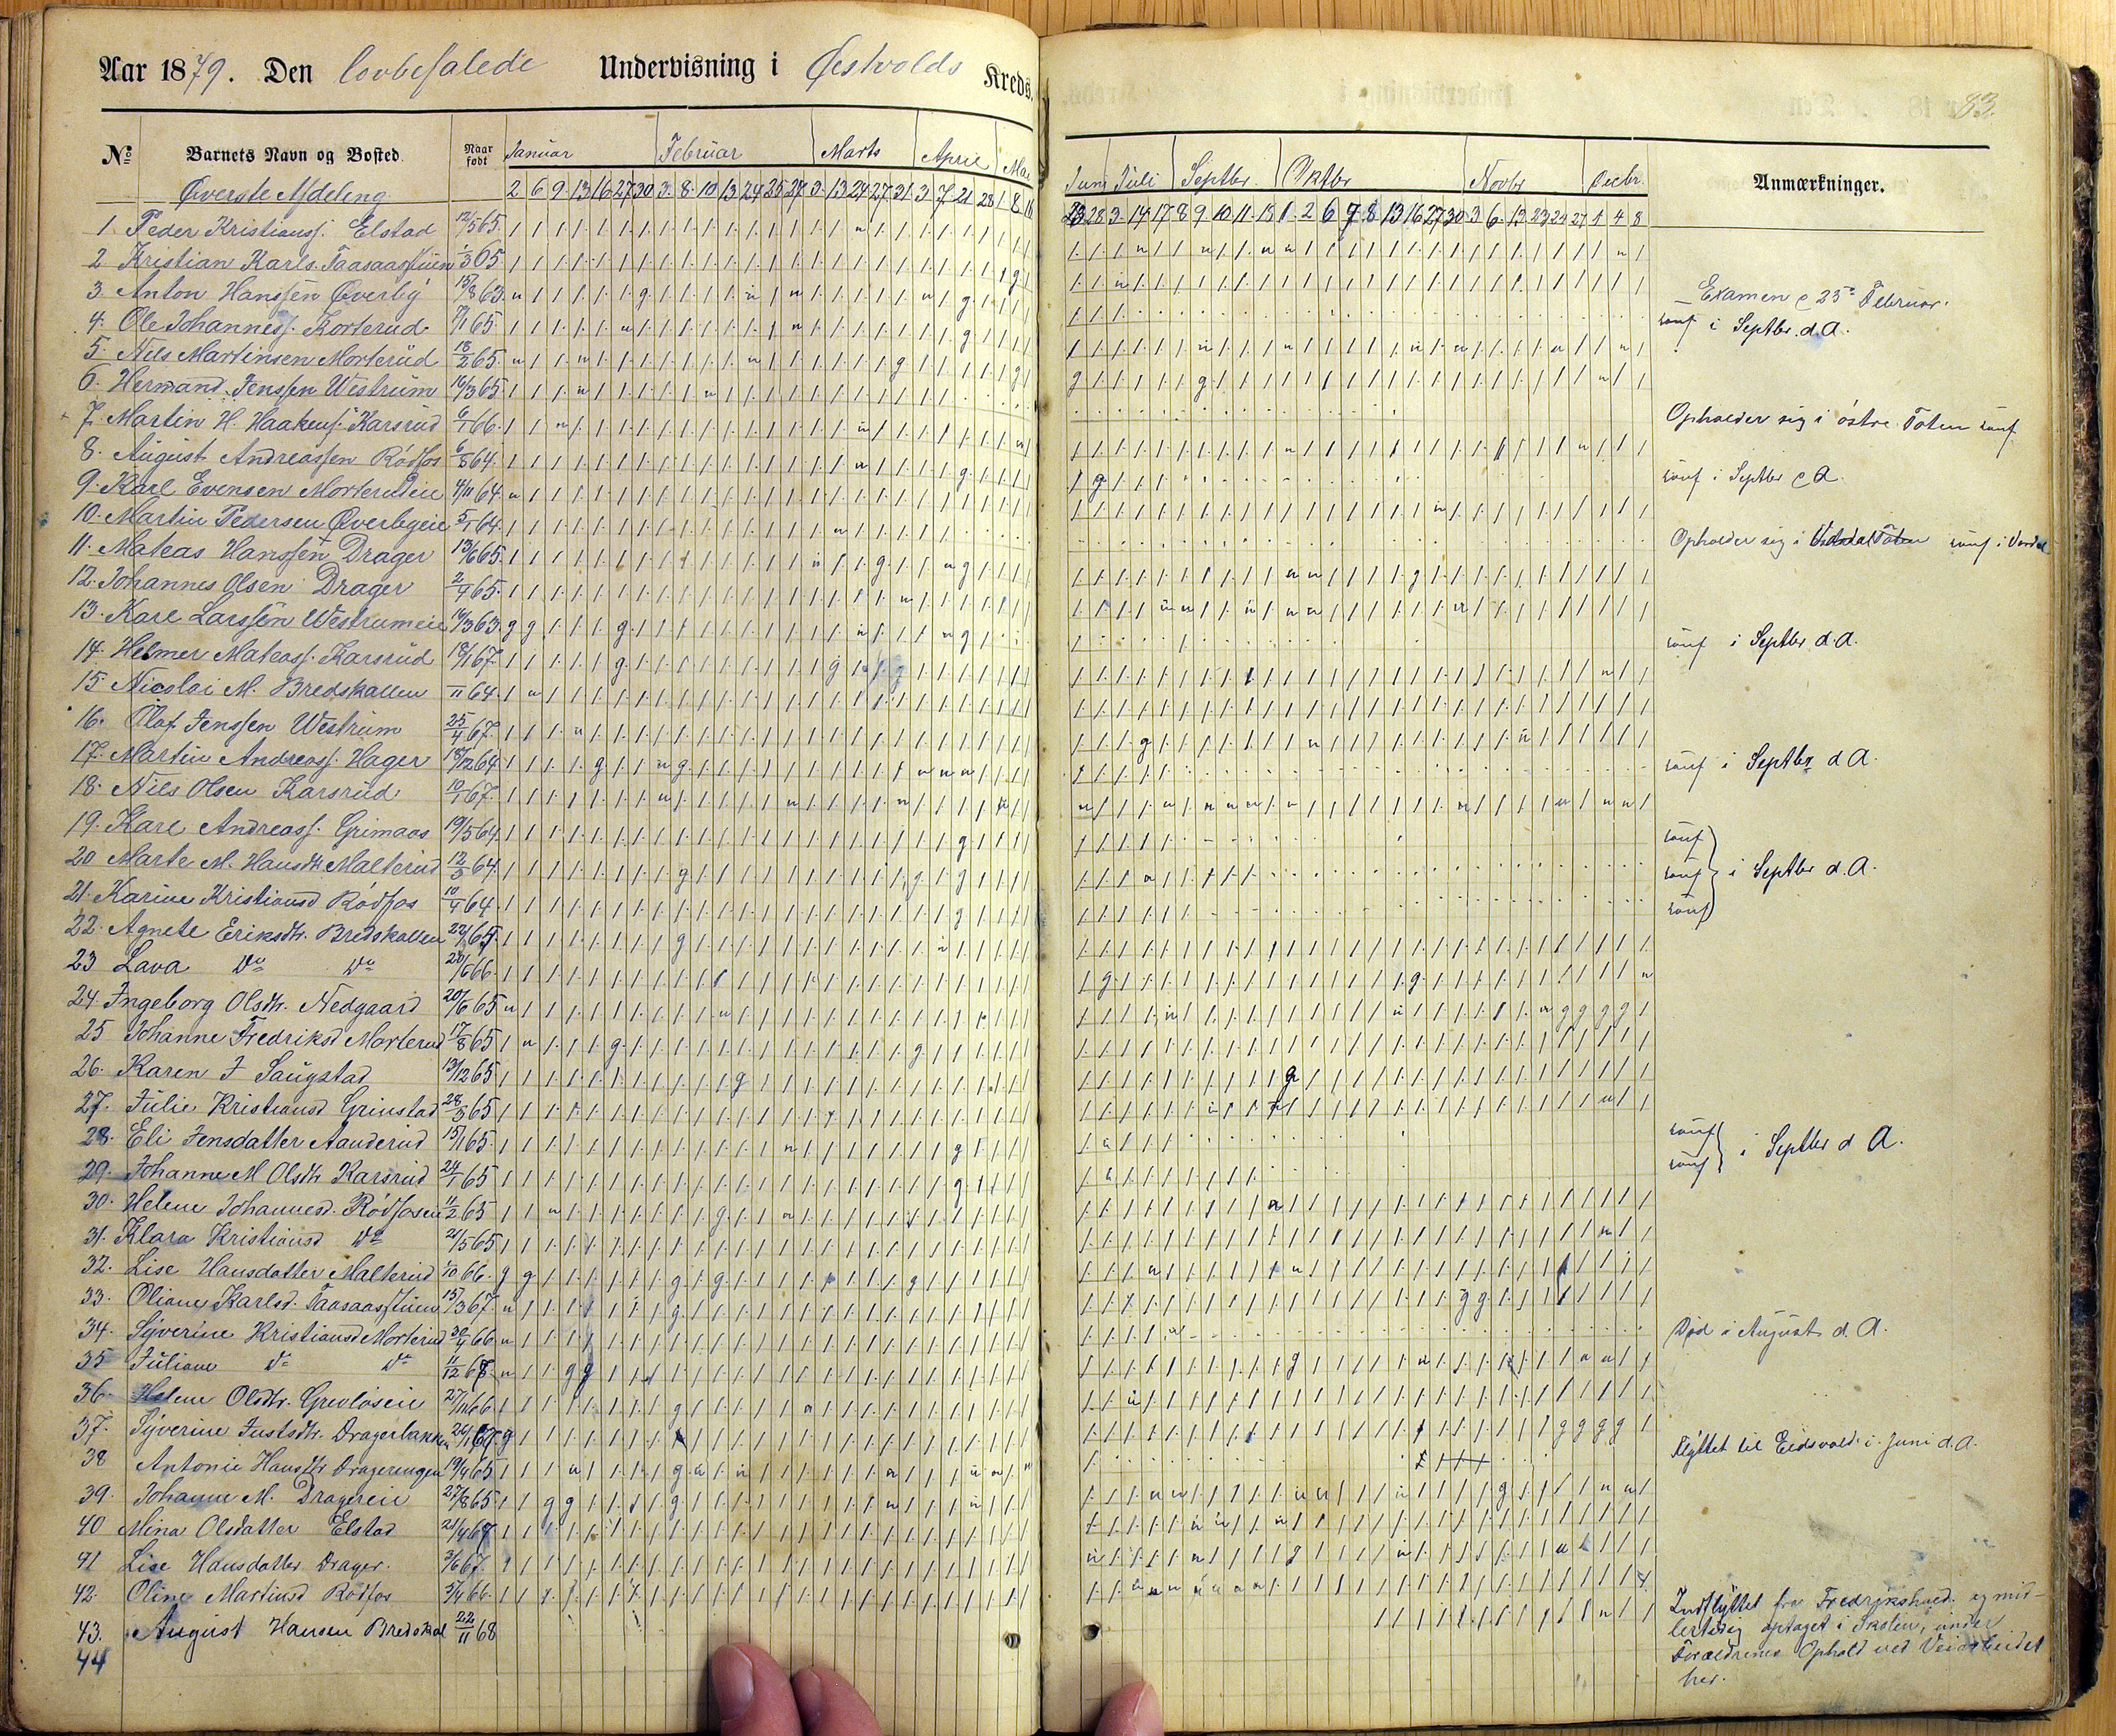 Aar 1879. Den lovbefalede Undervisning i Østvolds Kreds.
83.
No Barnets Navn og Bosted. Naar født Januar Februar Marts April Mai
Øverste Afdeling 2 6 9 13 16 27 30 3 8 10 13 24 25 27 3 13 24 27 31 3 7 21 28 1 8
Juni Juli Septbr. Oktbr Novbr Decbr. Anmærkninger.
23 28 3 14 17 8 9 10 11 13 1 2 6 7 8 13 16 27 30 3 6 13 23 24 27 1 4 8
1 Peder Kristianss. Elstad 12/5 65.
2 Kristian Karls. Taasaasstuen 1/3 65
3. Anton Hanssen Øverby 15/8 63 Examen 25de Februar.
4. Ole Johanness. Korterud 7/1 65 konf i Septbr. d.A.
5. Nils Martinsen Morterud 18/2 65.
6. Hermand Jenssen Westrum 16/3 65 Opholder sig i østre Toten konf
7. Martin H. Haakens. Karsrud 6/1 66.
8. August Andreassen Rødfos 6/8 64. konf i Septbr d A.
9. Karl Evensen Morterudeie 4/11 64
10. Martin Pedersen Øverbyeie 5/1 64. Opholder sig i konf i Vardal
11. Mateas Hanssen Drager 13/6 65.
12. Johannes Olsen Drager 2/4 65.
13. Karl Larssen Westrumeie 16/3 63. konf i Septbr d.A.
14. Helmer Mateass. Karsrud 18/1 67.
15 Nicolai M. Bredskallen /11 64.
16. Olaf Jenssen Westrum 25/4 67.
17. Martin Andreass. Hager 18/12 64 konf i Septbr d A.
18. Nils Olsen Karsrud 10/1 67.
19. Karl Andreass. Grimaas 19/5 64 konf
20 Marte M. Hansdtr Malterud 12/3 64. konf i Septbr d.A.
21. Karine Kristiansd Rødfos 10/4 64 konf
22. Agnete Eriksdtr. Bredskallen
23 Lava Do Do
24. Ingeborg Olsdtr. Nedgaard 20/6 65
25 Johanne Fredriksd Morterud 17/8 65
26. Karen J Saugstad 13/12 65
27. Julie Kristiansd Grinstad 28/3 65
28. Eli Jensdatter Aanderud 15/1 65 konf
29. Johanne M Olsdtr Karsrud 24/1 65 konf i Septbr d A.
30. Helene Johannesd. Rødfoseie 11/2 65
31. Klara Kristiansd Do 21/5 65
32. Lise Hansdatter Malterud /10 66.
33. Oliane Karlsd. Taasaasstuen 15/3 67.
34. Syverine Kristiansd Morterud 30/4 66 Død i August d.A.
35 Juliane Do Do
36. Helene Olsdtr. Grevløseie 27/11 66
37. Syverine Justsdtr. Dragerbakken
38 Antonie Hansdtr Dragerengen 19/4 65 Flyttet til Eidsvold i Juni d.A.
39. Johanne M. Dragereie 27/8 65
40 Mina Olsdatter Elstad 21/4 67
41 Lise Hansdatter Drager. 3/6 67.
42. Oline Martinsd Rødfos 3/4 66.
43. August Hansen Bredskal 22/11 68 Indflyttet fra Fredrikshald. og mid-
lertidig optaget i Skolen, under
44 Forældrenes Ophold ved Veiarbeidet
her.